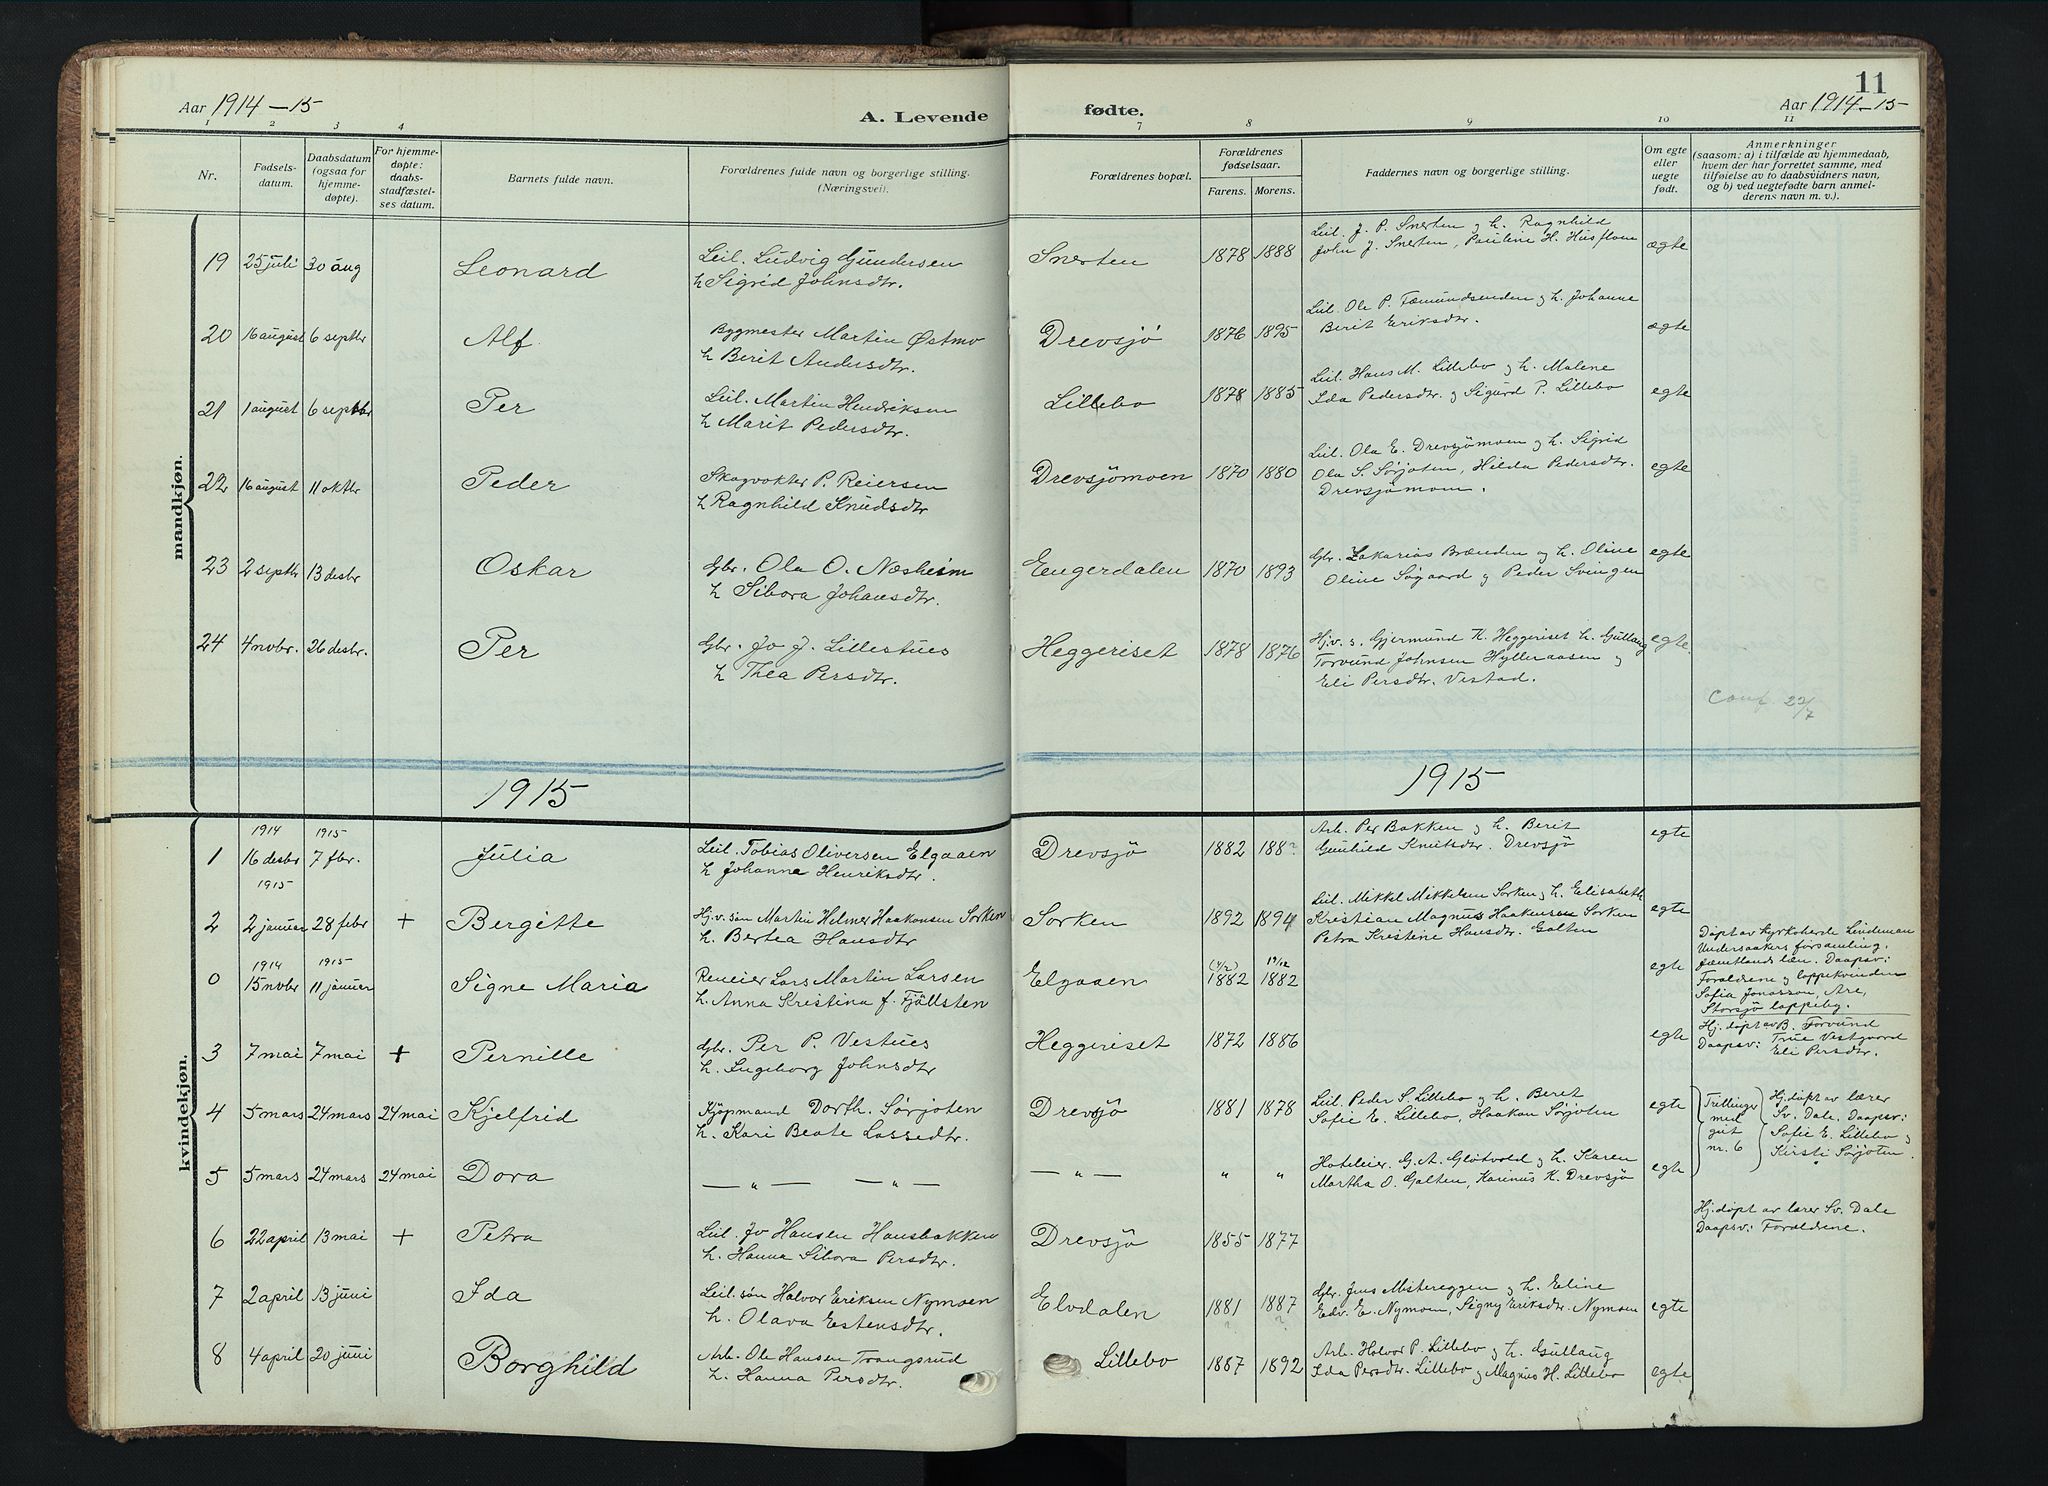 Aar 1914-15
A. Levende
fødte.
11
Aar 1914-15
1 2 3 4 7 8 9 10 11
Nr.
Fødsels-
datum.
Daabsdatum
(ogsaa for
hjemme-
døpte).
For hjemme-
døpte:
daabs-
stadfæstel-
ses datum.
Barnets fulde navn.
Forældrenes fulde navn og borgerlige stilling.
(Næringsvei).
Forældrenes bopæl.
Forældrenes
fødselsaar.
Farens. Morens.
Faddernes navn og borgerlige stilling.
Om egte
eller
uegte
født.
Anmerkninger
(saasom: a) i tilfælde av hjemmedaab,
hvem der har forrettet samme, med
tilføielse av to daabsvidners navn,
og b) ved uegtefødte barn anmel-
derens navn m. v.).
mandkjøn.
19 25 juli 30 aug Leonard
Leil. Ludvig Gundersen
h Sigrid Johnsdtr.
Snerten 1878 1888
Leil. J. P. Snerten og h. Ragnhild
John J. Snerten, Pauline H. Husfloen
ægte
20 16 august 6 septbr Alf
Bygmester Martin Østmo
h Berit Andersdtr.
Drevsjö 1876 1895
Leil. Ole P. Fæmundsenden og h. Johanne
Berit Eriksdtr.
ægte
21 1 august 6 septbr Per
Leil. Martin Hendriksen
h Marit Pedersdtr.
Lillebo 1878 1885
Leil. Hans M. Lillebo og h. Malene
Ida Pedersdtr. og Sigurd P. Lillebo
egte
22 16 august 11 oktbr Peder
Skogvokter P. Reiersen
h Ragnhild Knudsdtr
Drevsjömoen 1870 1880
Leil. Ola E. Drevsjömoen og h. Sigrid
Ola S. Sørjoten, Hilda Pedersdtr.
Drevsjömoen.
egte
23 2 septbr 13 desbr Oskar
Gbr. Ola O. Næsheim
h Sibora Johansdtr.
Engerdalen 1870 1893
Gbr. Zakarias Brænden og h. Oline
Oline Søgaard og Peder Svingen
egte
24 4 novbr. 26 desbr. Per
Gbr. Jo J. Lillestues
h Thea Persdtr.
Heggeriset 1878 1876
Hj.v. s. Gjermund K. Heggeriset h. Gullaug
Torvund Johnsen Hylleraasen og
Eli Persdtr. Vestad.
egte.
Conf. 22/7
1915
1915
kvindekjøn.
1914 1915
1 16 desbr 7 fbr. Julia
Leil. Tobias Oliversen Elgaaen
h Johanna Henriksdtr.
Drevsjö 1882 188?
Arb. Per Bakken og h. Berit
Gunhild Knutsdtr. Drevsjö
egte
1915
2 2 januar 28 febr + Bergitte
Hj.v. søn Martin Helmer Haakonsen Sorken
h. Bertea Hansdtr
Sorken 1892 1894
Leil. Mikkel Mikkelsen Sorken og h. Elisabeth
Kristian Magnus Haakensen Sorken
Petra Kristine Hansdtr. Galten
egte
1914 1915
0 15 novbr 11 januar Signe Maria
Reneier Lars Martin Larsen
h. Anna Kristina f. Fjällsten
Elgaaen 1882 1882
egte
Døpt av Kyrkoherde Lindeman
Undersaakers forsamling.
Jæmtlands læn. Daapsv:
Foræeldrene og lappekvinden
Sofia Jonasson, Are,
Storsjø lappeby.
3 7 mai 7 mai + Pernille
Gbr. Per P. Vestues
h. Ingeborg Johnsdtr
Heggeriset 1872 1886
egte
Hj. døpt av B. Torvund
Daapsv: True Vestgaard
Eli Persdtr.
4 5 mars 24 mars 24 mai Kjelfrid
Kjøpmand Dorth. Sørjoten
h. Kari Beate Lassedtr.
Drevsjö 1881 1878
Leil. Peder S. Lillebo og h. Berit
Sofie E. Lillebo, Haakon Sørjoten
egte
Trillinger
med
gut
nr. 6
Hj.døpt av lærer
Sv. Dale. Daapsv:
Sofie E. Lillebo og
Kirsti Sørjoten.
5 5 mars 24 mars 24 mai Dora
— „ — — „ —
— „ — „ „
Hoteleier. G. A. Gløtvold og h. Karen
Martha O. Galten, Karinus K. Drevsjö
egte
6 22 april 13 mai + Petra
Leil. Jo Hansen Hansbakken
h. Hanna Sibora Persdtr.
Drevsjö 1855 1877
Hj.døpt av lærer Sv. Dale
Daapsv: Foræeldrene.
7 2 april 13 juni Ida
Leil. søn Halvor Eriksen Nymoen
h. Olava Estensdtr.
Elvdalen 1881 1887
? ?
Gbr. Jens Mitereggen og h. Eline
Edv. E. Nymoen, Signy Eriksdtr. Nymoen
egte
8 4 april 20 juni Borghild
Arb. Ole Hansen Trangsrud
h. Hanna Persdtr.
Lillebo 1887 1892
Arb. Halvor P. Lillebo og h. Gullaug
Ida Persdtr. Lillebo og Magnus H. Lillebo
egte